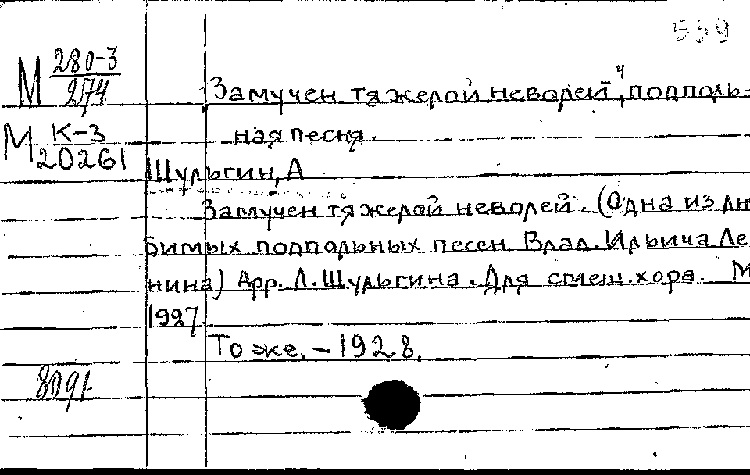 559
М 280-3
2174
„Замучен тяжелой неволей", подполь-
ная песня.
М К-3
20261
Шульгин, А
Замучен тяжелой неволей. (Одна из лю
бимых подпольных песен Влад. Ильича Ле
нина) Арр. Л. Шульгина. Для смеш. хора. М
1927.
То же. – 1928.
8091